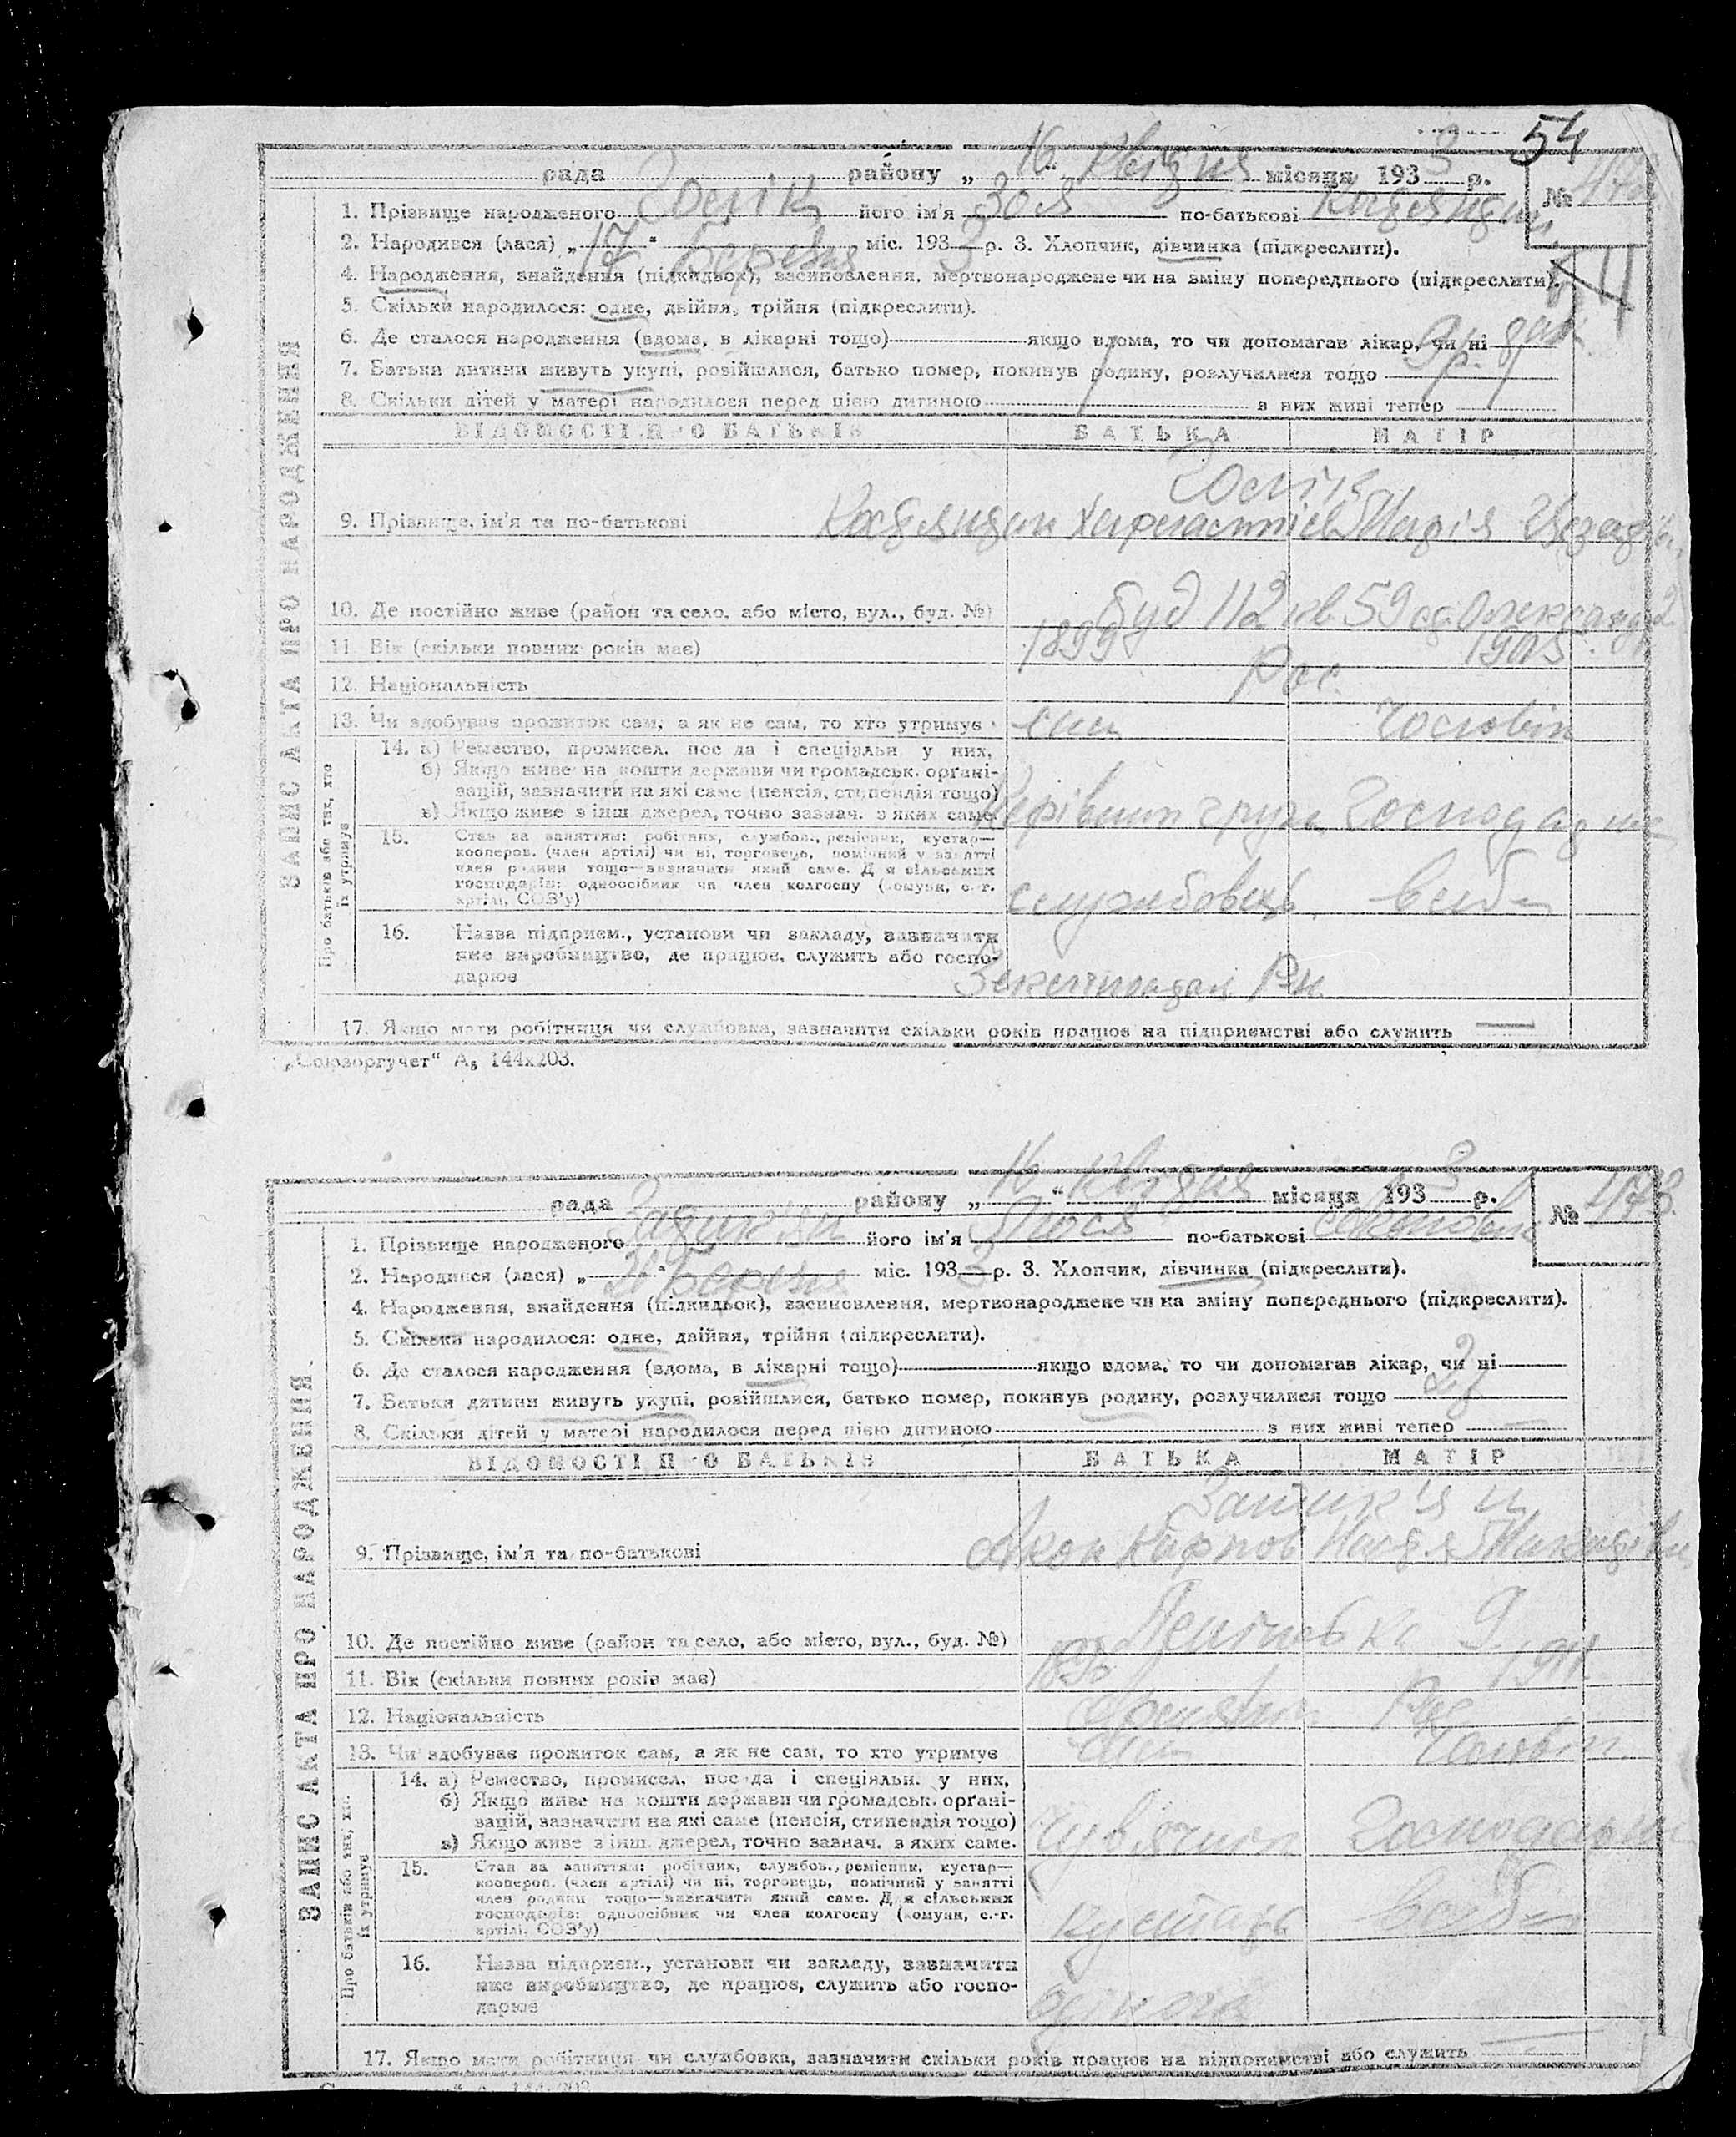 54
рада району „ 16 “ квітня місяця 1933 р.
№
1. Прізвище народженого його ім'я Зоя по-батькові
2. Народився (лася) „ 17 “ березня міс. 1933 р. 3. Хлопчик, дівчинка (підкреслити).
4. Народження, знайдення (підкидьок), засиновлення, мертвонароджене чи на зміну попереднього (підкреслити).
5. Скільки народилося: одне, двійня, трійня (підкреслити).
6. Де сталося народження (вдома, в лікарні тощо) якщо вдома, то чи допомагав лікар, чи ні
7. Батьки дитини живуть укупі, розійшлися, батько помер, покинув родину, розлучилися тощо
8. Скільки дітей у матері народилося перед цією дитиною з них живі тепер
ЗАПИС АКТА ПРО НАРОДЖЕННЯ
ВІДОМОСТІ ПРО БАТЬКІВ БАТЬКА МАТІР
9. Прізвище, ім'я та по-батькові Марія
10. Де постійно живе (район та село, або місто, вул., буд. №) буд 112 кв. 59
11. Вік (скільки повних років має) 1899 1905
12. Національність Рос.
13. Чи здобуває прожиток сам, а як не сам, то хто утримує сам чоловік
Про батьків або тих, хто їх утримує
14. а) Ремество, промисел, посада і спеціяльн. у них,
б) Якщо живе на кошти держави чи громадськ. органі-
зацій, зазначити на які саме (пенсія, стипендія тощо)
в) Якщо живе з інш. джерел, точно зазнач. з яких саме.
Керівник груп Господарка
15. Стан за заняттям: робітник, службов., ремісник, кустар—
кооперов. (член артілі) чи ні, торговець, помічний у занятті
член родини тощо—зазначити який саме. Для сільських
господарів: одноосібник чи член колгоспу (комуни, с.-г.
артілі, СОЗ'у)
службовець
16. Назва підприєм., установи чи закладу, зазначити
яке виробництво, де працює, служить або госпо-
дарює
17. Якщо мати робітниця чи службовка, зазначити скільки років працює на підприємстві або служить —
„Союзоргучет“ А₅ 144х203.
рада району „ 16 “ квітня місяця 1933 р.
№ 473
1. Прізвище народженого його ім'я Люся по-батькові
2. Народився (лася) „ “ березня міс. 1933 р. 3. Хлопчик, дівчинка (підкреслити).
4. Народження, знайдення (підкидьок), засиновлення, мертвонароджене чи на зміну попереднього (підкреслити).
5. Скільки народилося: одне, двійня, трійня (підкреслити).
6. Де сталося народження (вдома, в лікарні тощо) якщо вдома, то чи допомагав лікар, чи ні
7. Батьки дитини живуть укупі, розійшлися, батько помер, покинув родину, розлучилися тощо
8. Скільки дітей у матері народилося перед цією дитиною з них живі тепер —
ЗАПИС АКТА ПРО НАРОДЖЕННЯ
ВІДОМОСТІ ПРО БАТЬКІВ БАТЬКА МАТІР
9. Прізвище, ім'я та по-батькові
10. Де постійно живе (район та село, або місто, вул., буд. №) Ленінська 9
11. Вік (скільки повних років має) 1911
12. Національність Рос
13. Чи здобуває прожиток сам, а як не сам, то хто утримує сам чоловік
Про батьків або тих, хто їх утримує
14. а) Ремество, промисел, посада і спеціяльн. у них,
б) Якщо живе на кошти держави чи громадськ. органі-
зацій, зазначити на які саме (пенсія, стипендія тощо)
в) Якщо живе з інш. джерел, точно зазнач. з яких саме.
15. Стан за заняттям: робітник, службов., ремісник, кустар—
кооперов. (член артілі) чи ні, торговець, помічний у занятті
член родини тощо—зазначити який саме. Для сільських
господарів: одноосібник чи член колгоспу (комуни, с.-г.
артілі, СОЗ'у)
кустарь
16. Назва підприєм., установи чи закладу, зазначити
яке виробництво, де працює, служить або госпо-
дарює
17. Якщо мати робітниця чи службовка, зазначити скільки років працює на підприємстві або служить —